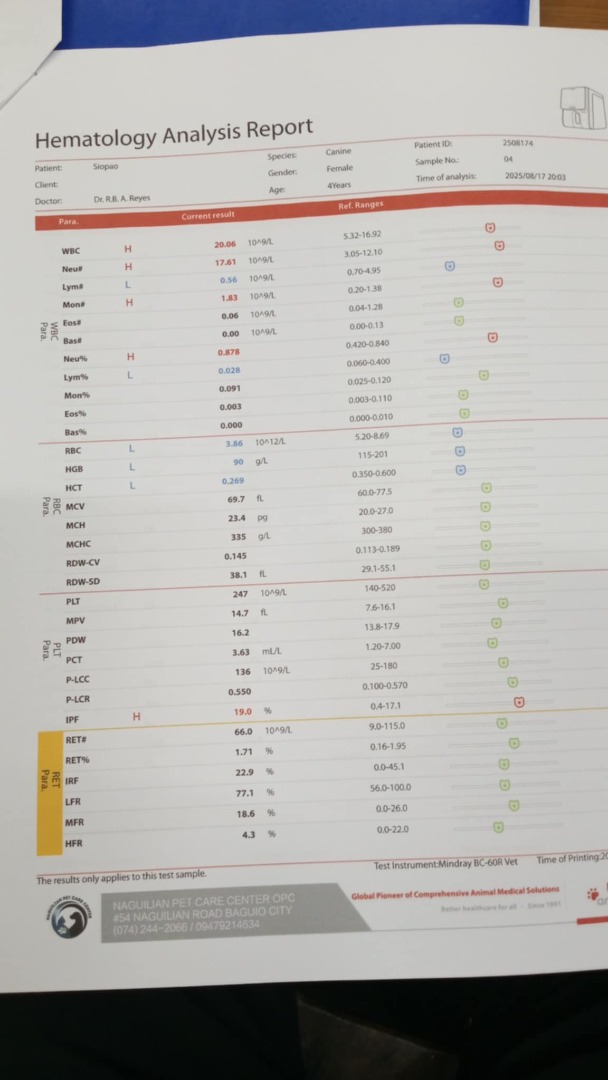 Hematology Analysis Report
Patient: Siopao Species: Canine Patient ID: 2508174
Client: Gender: Female Sample No.: 04
Doctor: Dr. R.B. A. Reyes Age: 4Years Time of analysis: 2025/08/17 20:03
Para. Current result Ref. Ranges
WBC Para.
WBC H 20.06 10^9/L 5.32-16.92
Neu# H 17.61 10^9/L 3.05-12.10
Lym# L 0.56 10^9/L 0.70-4.95
Mon# H 1.83 10^9/L 0.20-1.38
Eos# 0.06 10^9/L 0.04-1.28
Bas# 0.00 10^9/L 0.00-0.13
Neu% H 0.878 0.420-0.840
Lym% L 0.028 0.060-0.400
Mon% 0.091 0.025-0.120
Eos% 0.003 0.003-0.110
Bas% 0.000 0.000-0.010
RBC Para.
RBC L 3.86 10^12/L 5.20-8.69
HGB L 90 g/L 115-201
HCT L 0.269 0.350-0.600
MCV 69.7 fL 60.0-77.5
MCH 23.4 pg 20.0-27.0
MCHC 335 g/L 300-380
RDW-CV 0.145 0.113-0.189
RDW-SD 38.1 fL 29.1-55.1
PLT Para.
PLT 247 10^9/L 140-520
MPV 14.7 fL 7.6-16.1
PDW 16.2 13.8-17.9
PCT 3.63 mL/L 1.20-7.00
P-LCC 136 10^9/L 25-180
P-LCR 0.550 0.100-0.570
IPF H 19.0 % 0.4-17.1
RET Para.
RET# 66.0 10^9/L 9.0-115.0
RET% 1.71 % 0.16-1.95
IRF 22.9 % 0.0-45.1
LFR 77.1 % 56.0-100.0
MFR 18.6 % 0.0-26.0
HFR 4.3 % 0.0-22.0
The results only applies to this test sample. Test Instrument:Mindray BC-60R Vet Time of Printing:20
NAGUILIAN PET CARE CENTER
NAGUILIAN PET CARE CENTER OPC
#54 NAGUILIAN ROAD BAGUIO CITY
(074) 244-2066 / 09479214634
Global Pioneer of Comprehensive Animal Medical Solutions
Better healthcare for all - Since 1991